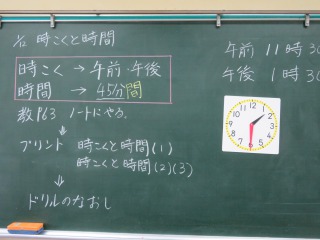 時こくと時間
時こく → 午前・午後
時間 → 45分間
教P63 ノートにやる。
↓
プリント 時こくと時間(1)
時こくと時間(2)(3)
↓
ドリルのなおし
午前 11時 3
午後 1時 3